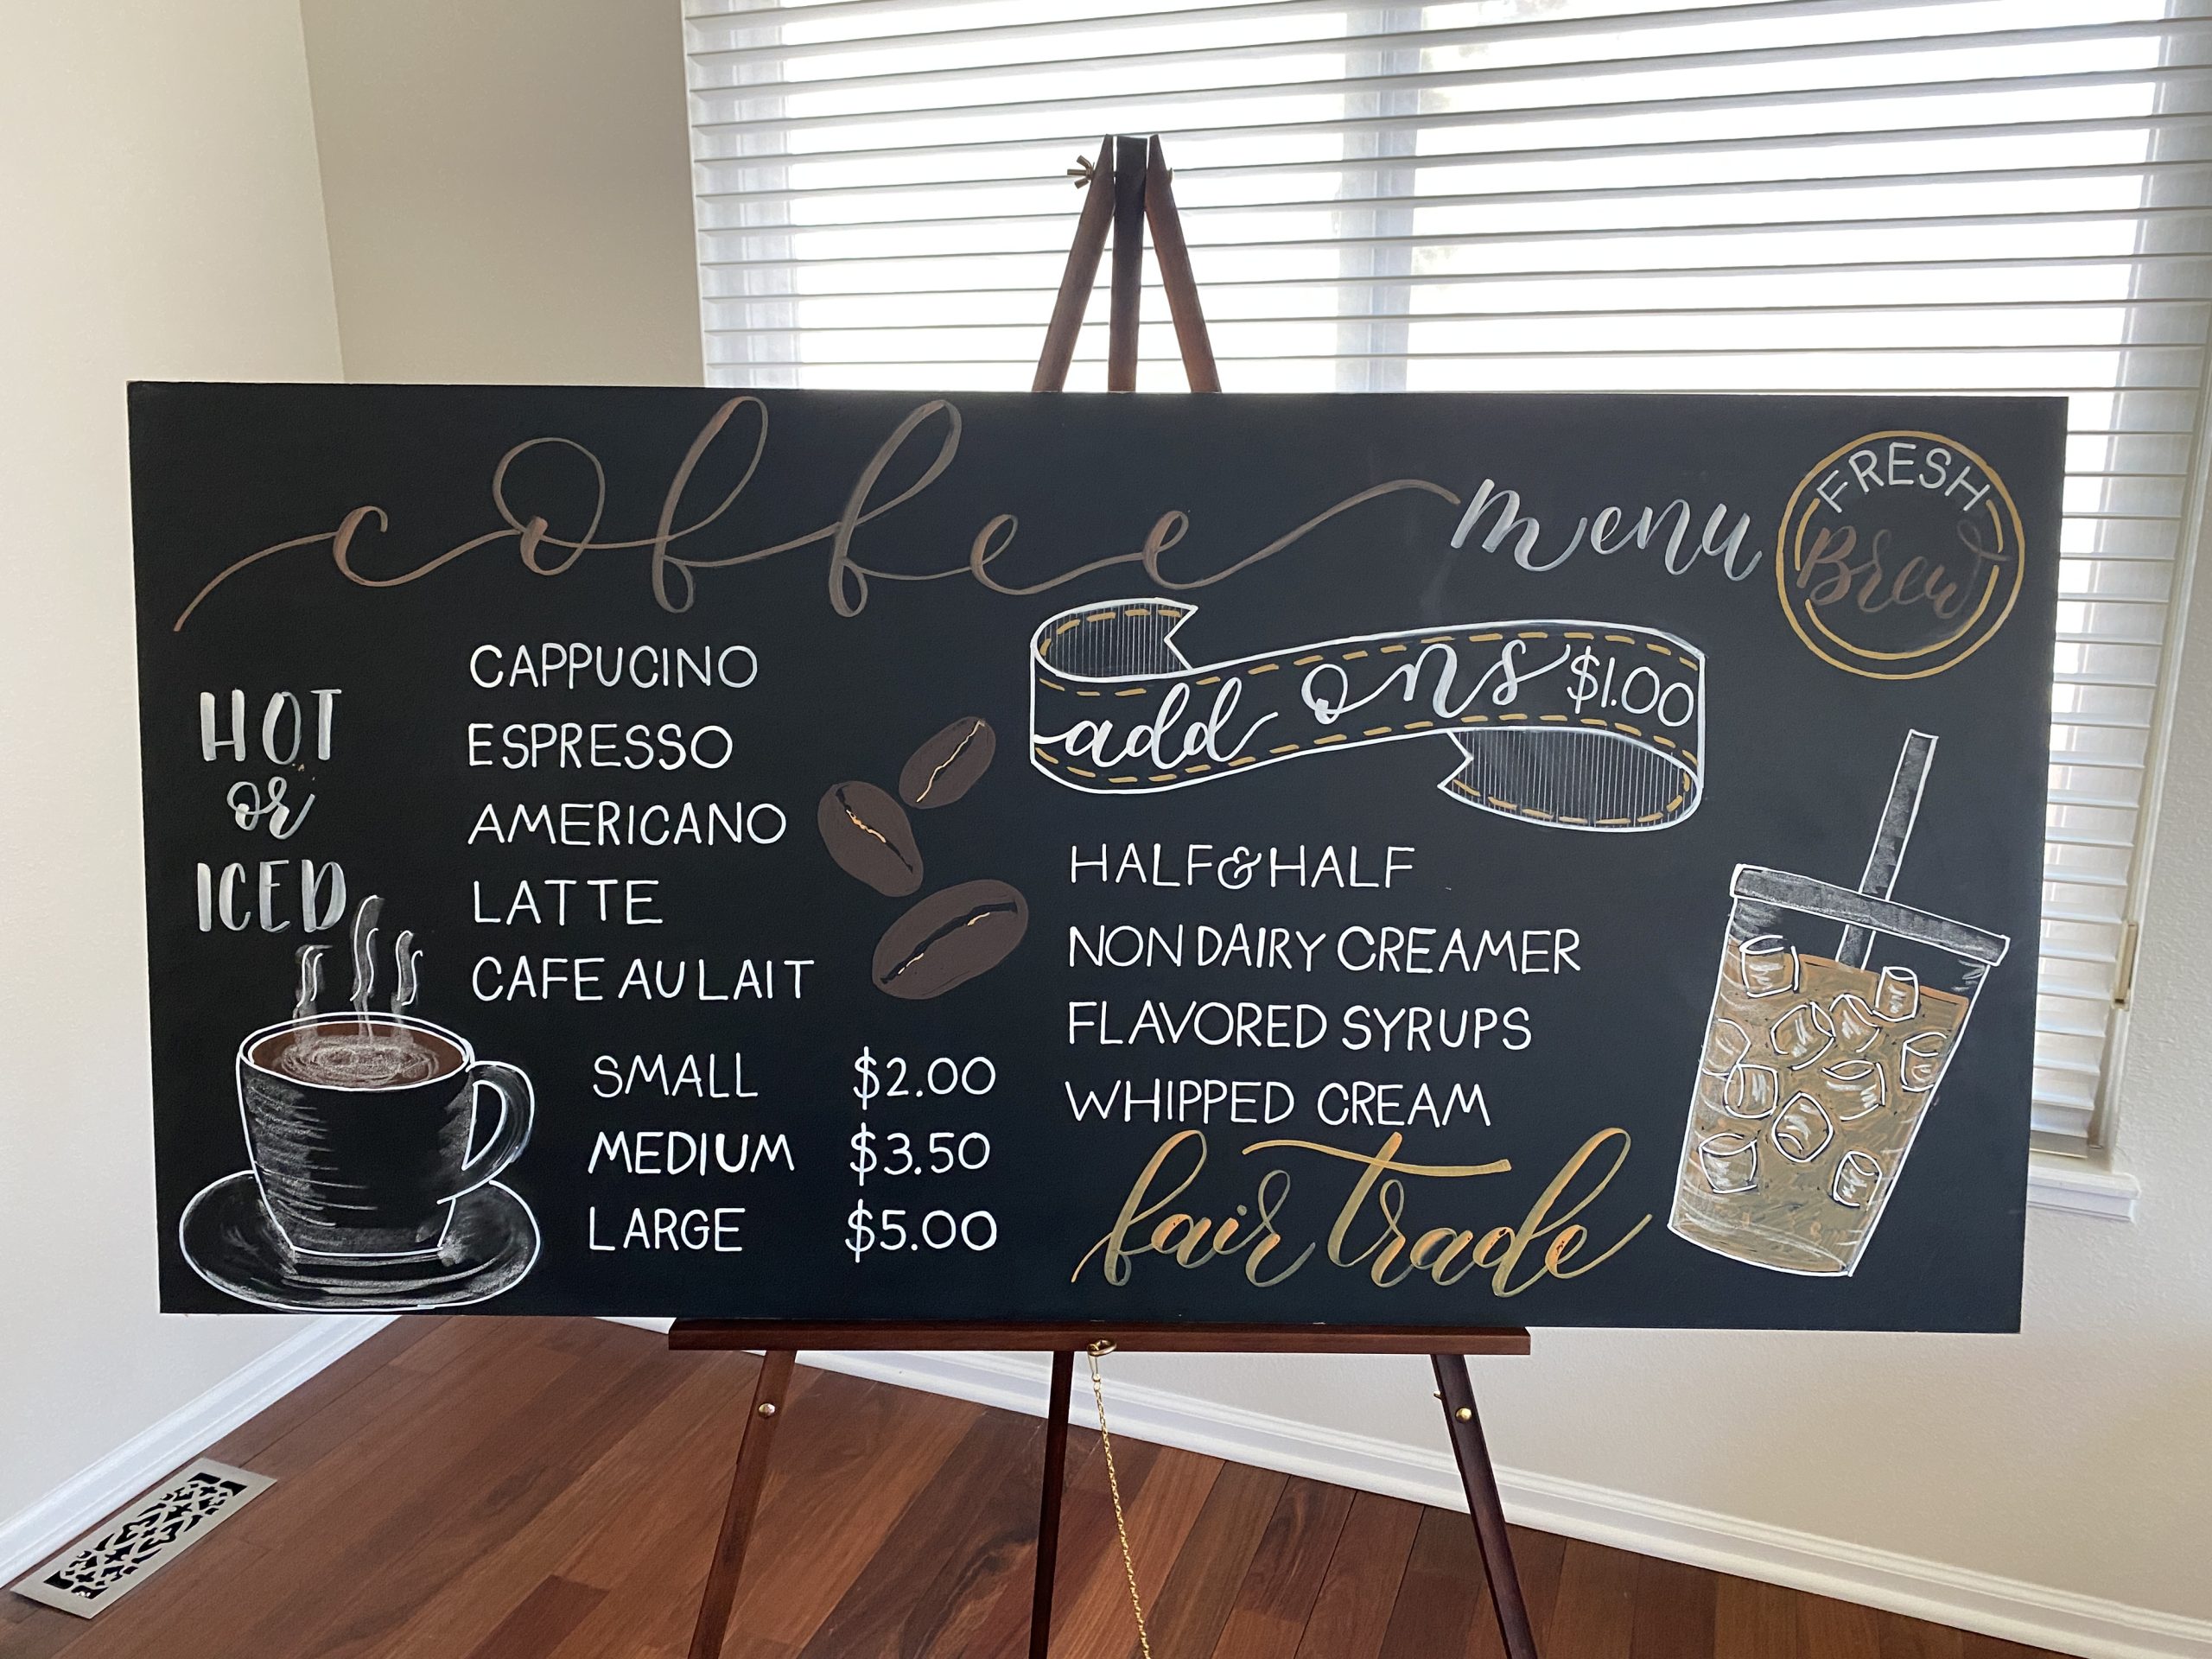 coffee menu
FRESH
Brew
HOT
or
ICED
CAPPUCINO
ESPRESSO
AMERICANO
LATTE
CAFE AU LAIT
SMALL $2.00
MEDIUM $3.50
LARGE $5.00
add ons $1.00
HALF & HALF
NON DAIRY CREAMER
FLAVORED SYRUPS
WHIPPED CREAM
fair trade